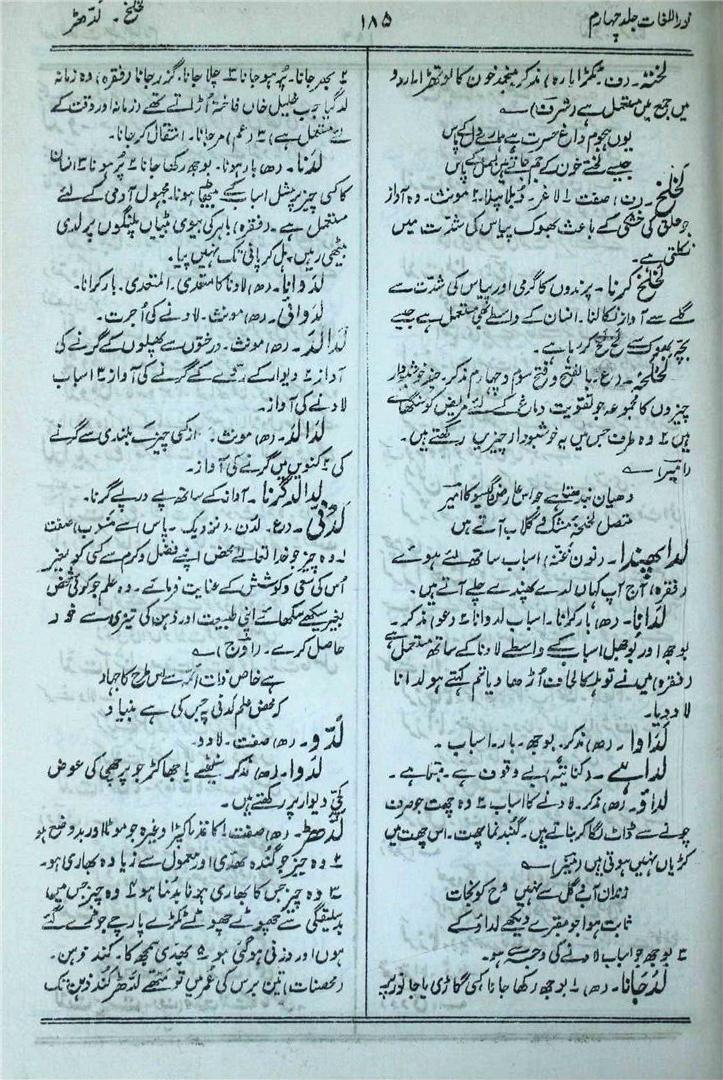 نوراللغات جلد چہارم
۱۸۵
لخلخ۔ لدھڑ
لختہ۔ (ف۔ ٹکڑا پارہ) مذکر منجمد خون کا لوتھڑا۔ اردو
میں جمع میں مستعمل ہے (شرف) ؎
یوں ہجوم داغ حسرت ہے ہمارے دل کے پاس
جیسے لختے خون کے جم جاتے ہیں بسمل کے پاس
لخلخ۔ (ف) صفت ۱ لاغر۔ دبلا پتلا ۲ مونث۔ وہ آواز
جو حلق کی خشکی کے باعث بھوک پیاس کی شدت میں
نکلتی ہے۔
لخلخ کرنا۔ پرندوں کا گرمی اور پیاس کی شدت سے
گلے سے آواز نکالنا۔ انسان کے واسطے بھی مستعمل ہے جیسے
بچہ بھوک سے لخ لخ کر رہا ہے۔
لخلخہ۔ (ع۔ بالفتح و فتح سوم و چہارم) مذکر۔ چند خوشبودار
چیزوں کا مجموعہ جو تقویت دماغ کے لئے مریض کو سنگھاتے
ہیں ۲ وہ ظرف جس میں یہ خوشبودار چیزیں رکھتے ہیں۔
(امیر) ؎
دھیان بندھتا ہے جو اس عارض و گیسو کا امیر
متصل لخلخہ مشک و گلاب آتے ہیں
لدا پھندا۔ (نون غنہ) اسباب ساتھ لئے ہوئے
(فقرہ) آج آپ کہاں لدے پھندے چلے آتے ہیں۔
لدانا۔ (ھ) بار کرانا۔ اسباب لدوانا ۲ (عو) مذکر۔
بوجھ اور بوجھل اسباب کے واسطے لادنا کے ساتھ مستعمل ہے
(فقرہ) میں نے تو ہلکا لحاف اڑھا دیا تم کہتے ہو لدانا
لاد دیا۔
لداوا۔ (ھ) مذکر۔ بوجھ۔ بار۔ اسباب۔
لدا ہے۔ (کنایۃً) بے وقوف ہے۔ چتہا ہے۔
لداؤ۔ (ھ) مذکر۔ لادنے کا اسباب ۲ وہ چھت جو صرف
چونے سے ڈاٹ لگا کر بناتے ہیں۔ گنبد نما چھت۔ اس چھت میں
کڑیاں نہیں ہوتی ہیں (منیر) ؎
زندان آب و گل سے نہیں روح کو نجات
ثابت ہوا جو مقبرے دیکھے لداؤ کے
۳ بوجھ جو اسباب لادنے کی وجہ سے ہو۔
لد جانا۔ (ھ) ۱ بوجھ رکھا جانا کسی گاڑی یا جانور پر
۲ بھر جانا۔ پر ہو جانا ۳ چلا جانا۔ گزر جانا (فقرہ) وہ زمانہ
لد گیا جب خلیل خاں فاختہ اڑاتے تھے (زمانہ اور وقت کے
لئے مستعمل ہے) ۴ (عم) مر جانا۔ انتقال کر جانا۔
لدنا۔ (ھ) بار ہونا۔ بوجھ رکھنا جانا ۲ پر ہونا ۳ انسان
کا کسی چیز پر مثل اسباب کے بیٹھا ہونا۔ مجہول آدمی کے لئے
مستعمل ہے۔ (فقرہ) باہر کی بیوی بٹیاں پلنگوں پر لدی
بیٹھی رہیں ہل کر پانی تک نہیں پیا۔
لدوانا۔ (ھ) لادنا کا متعدی۔ المتعدی۔ بار کرانا۔
لدوائی۔ (ھ) مونث۔ لادنے کی اجرت۔
لدا لد۔ (ھ) مونث۔ درختوں سے پھلوں کے گرنے کی
آواز ۲ دیوار کے گرنے کی آواز ۳ اسباب
لادنے کی آواز۔
لدالد۔ (ھ) مونث۔ کسی چیز کے بلندی سے گرنے
کی ۲ کنویں میں گرنے کی آواز۔
لدالد گرنا۔ آواز کے ساتھ پے درپے گرنا۔
لدنی۔ (ع۔ لدن۔ نزدیک۔ پاس اسے منسوب) صفت
۱ وہ چیز جو خدا تعالے محض اپنے فضل و کرم سے کسی کو بغیر
اس کی سعی و کوشش کے عنایت فرمائے۔ وہ علم جو کوئی شخص
بغیر سیکھے سکھائے اپنی طبیعت اور ذہن کی تیزی سے خود
حاصل کرے۔ (اوج) ؎
ہے خاص ذوات ائمہ سے اس طرح کا جہاد
کہ محض علم لدنی جس کی ہے بنیاد
لدو۔ (ھ) صفت۔ لادو۔
لدوا۔ (ھ) مذکر سینٹھے یا جھاکڑ جو پرچھی کی عوض
کچی دیوار پر رکھتے ہیں۔
لدھڑ۔ (ھ) صفت ۱ کاغذ یا کپڑا وغیرہ جو موٹا اور بد وضع ہو
۲ وہ چیز جو گندہ بھدی اور معمول سے زیادہ بھاری ہو۔
۳ وہ چیز جس کا بھاری ہونا بدنما ہو ۴ وہ چیز جس میں
بدسلیقگی سے چھوٹے چھوٹے ٹکڑے پارچے جوڑے گئے
ہوں اور وزنی ہو گئی ہو ۵ بھدی سمجھ کا۔ کند ذہن۔
(محصنات) تین برس کی عمر میں تو مٹھے لدھڑ کند ذہن تک